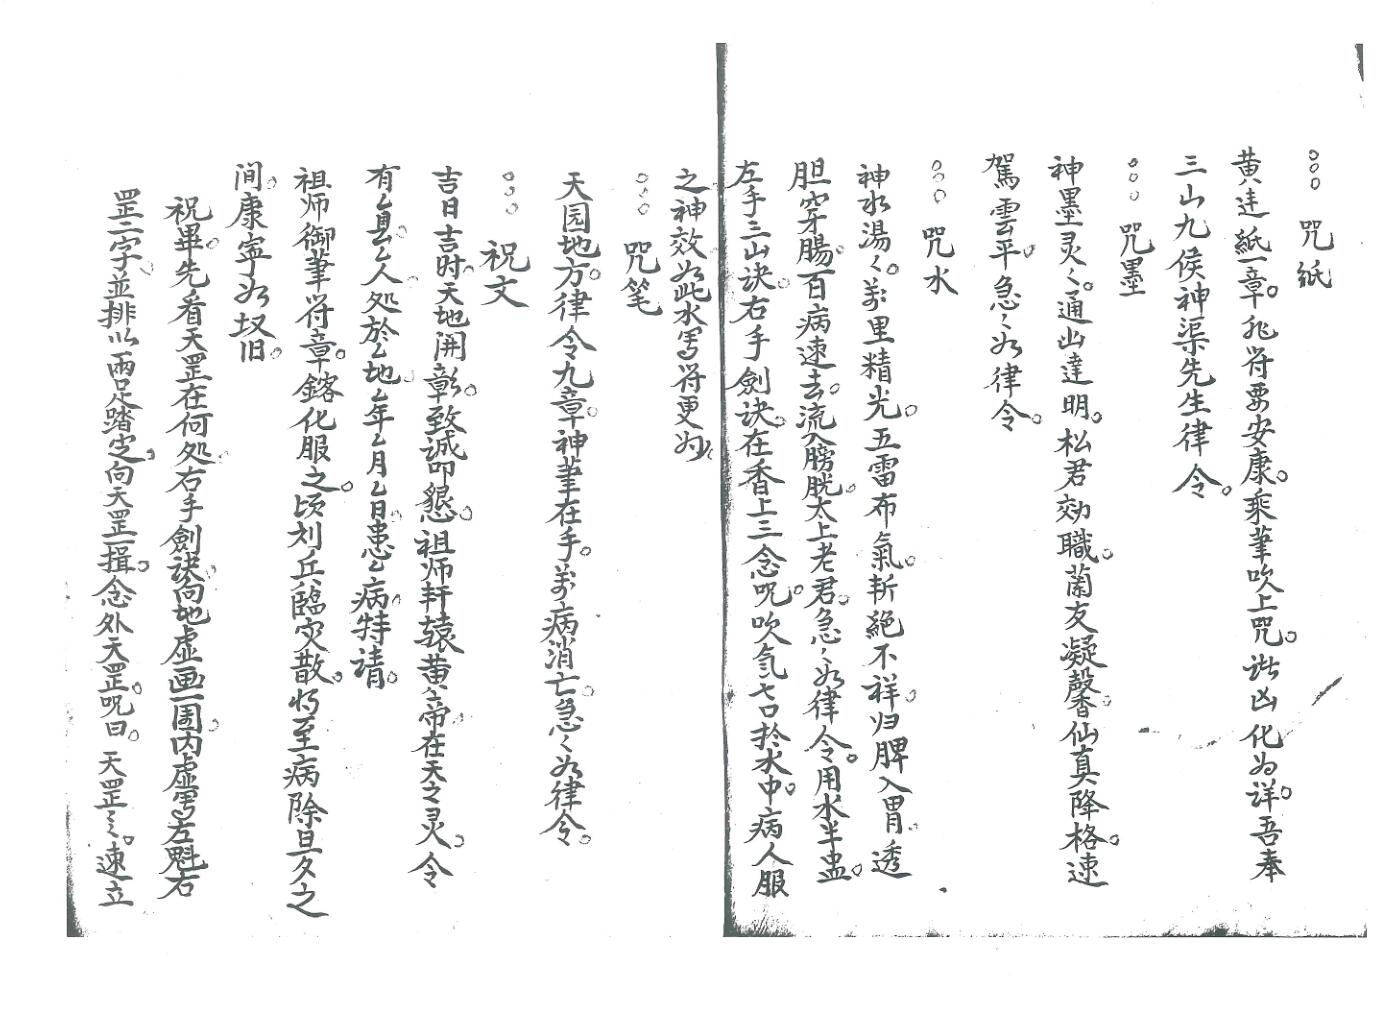 咒紙
黄達紙一章。兆符要安康。乘筆吹上咒。諸凶化为詳。吾奉
三山九侯神渠先生律令。
咒墨
神墨灵々。通幽達明。松君効職。蘭友凝馨。仙真降格。速
駕雲平。急々如律令。
咒水
神水湯々。萬里精光。五雷布氣。斬絕不祥。归脾入胃。透
胆穿腸。百病速去。流入膀胱。太上老君。急々如律令。用水半盅。
左手三山诀。右手劍诀。在香上三念咒。吹気七口於水中。病人服
之神效。如此水寫符更妙。
咒笔
天园地方。律令九章。神筆在手。萬病消亡。急々如律令。
祝文
吉日吉时。天地開彰。致诚叩懇。祖师軒辕黄帝在天之灵。令
有厶县厶人处於厶地。厶年厶月厶日。患厶病。特請。
祖师御筆符章。鎔化服之。顷刻兵臨灾散。将至病除旦夕之
间。康寧如故旧。
祝畢。先看天罡在何处。右手劍诀向地虚画一圈。内虚寫左魁右
罡二字。並排以兩足踏定。向天罡一揖。念外天罡。咒曰。天罡々々。速立